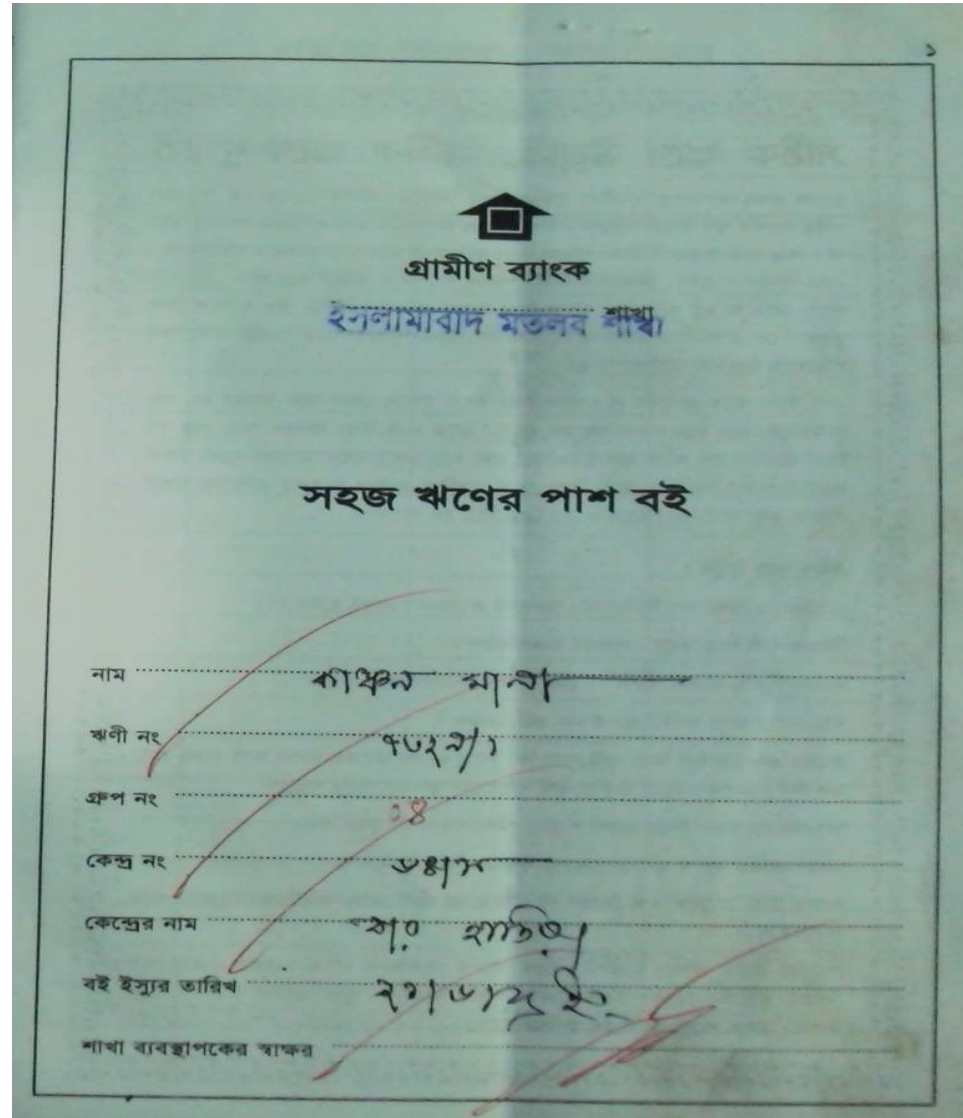 ১
গ্রামীণ ব্যাংক
ইসলামাবাদ মতলব শাখা
সহজ ঋণের পাশ বই
নাম কাঞ্চন মালা
ঋণী নং
গ্রুপ নং ০৪
কেন্দ্র নং
কেন্দ্রের নাম
বই ইস্যুর তারিখ
শাখা ব্যবস্থাপকের স্বাক্ষর